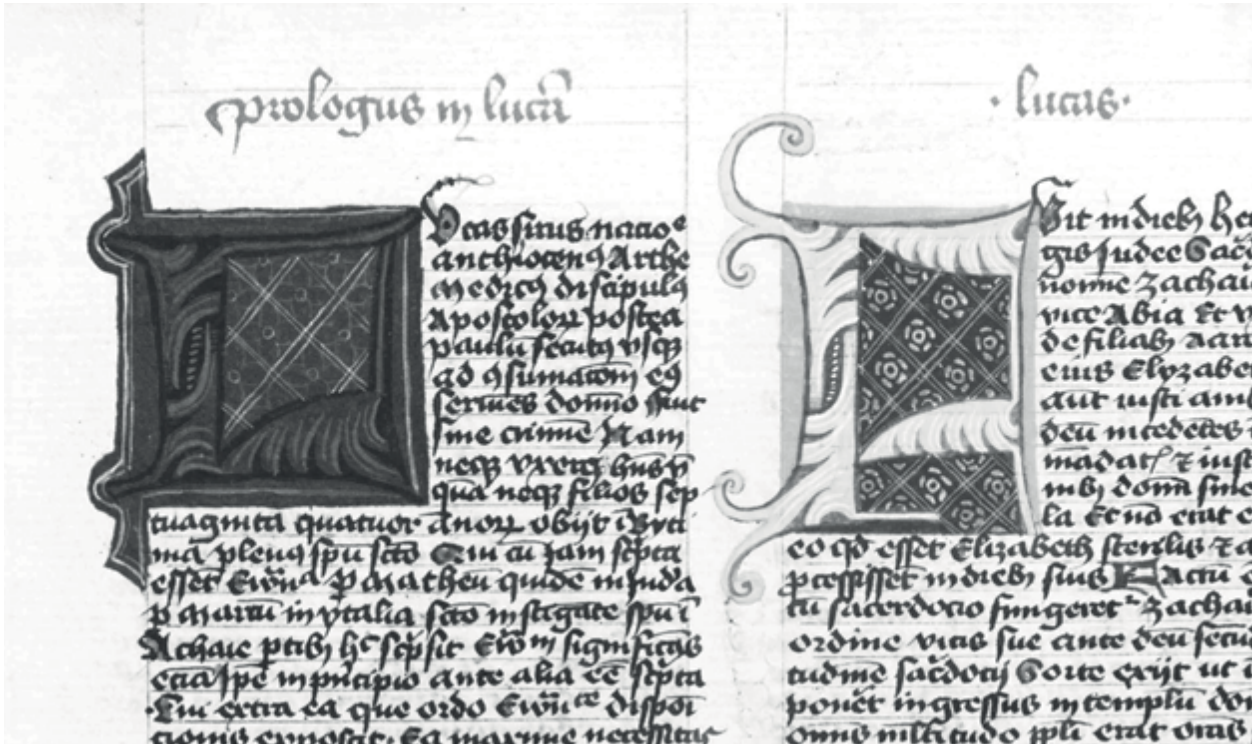 prologus in lucā
Lucas sirus nacioe
anthiocenꝰ Arthe
medicꝰ discipulꝰ
Apostoloꝝ postea
paulū secutꝰ vsqꝫ
ad ꝯsumatōem eꝰ
seruiēs domino siut
sine crimine Nam
neqꝫ vxorē
qua neqꝫ filios sep
tuaginta quatuor anoꝝ obijt ī Byti
ma plenꝰ spū scto Qui cū iam scpta
essēt Ewāa ꝑ Matheū quidē in iudˀa
ꝑ Marcū in ytalia scto instigāte spū ī
Achaie ptibꝫ hͦ scpsit Ewm significās
etiā ipē in pncipio ante alia eē scpta
Cui extra ea que ordo Ewāce disposi
cionis exposcit Ea maxime necessitas
· lucas ·
Fuit in diebꝫ he
gis Judee Sac
nomine Zachari
vice Abia Et v
de filiabꝫ Aaro
eius Elyzabe
aūt iusti amb
deū incedētes ī
mādatꝭ ⁊ iusti
nibꝫ domī sine
la Et nō erat
eo qd esset Elizabeth sterilis ⁊ a
pcessissēt in diebꝫ suis Factū
cū sacerdocio fungeret Zachar
ordine vicis sue ante deū secū
tudinē sacdotij Sorte exijt ut ī
ponēt ingressus in templū dom
omnis multitudo ppli erat orās